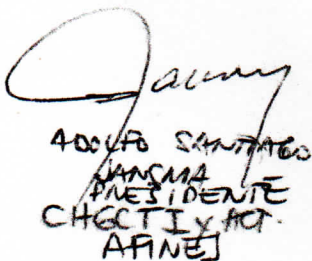 ADOLFO SANTIAGO
PRESIDENTE
CHGCTI y ACT.
AFINES